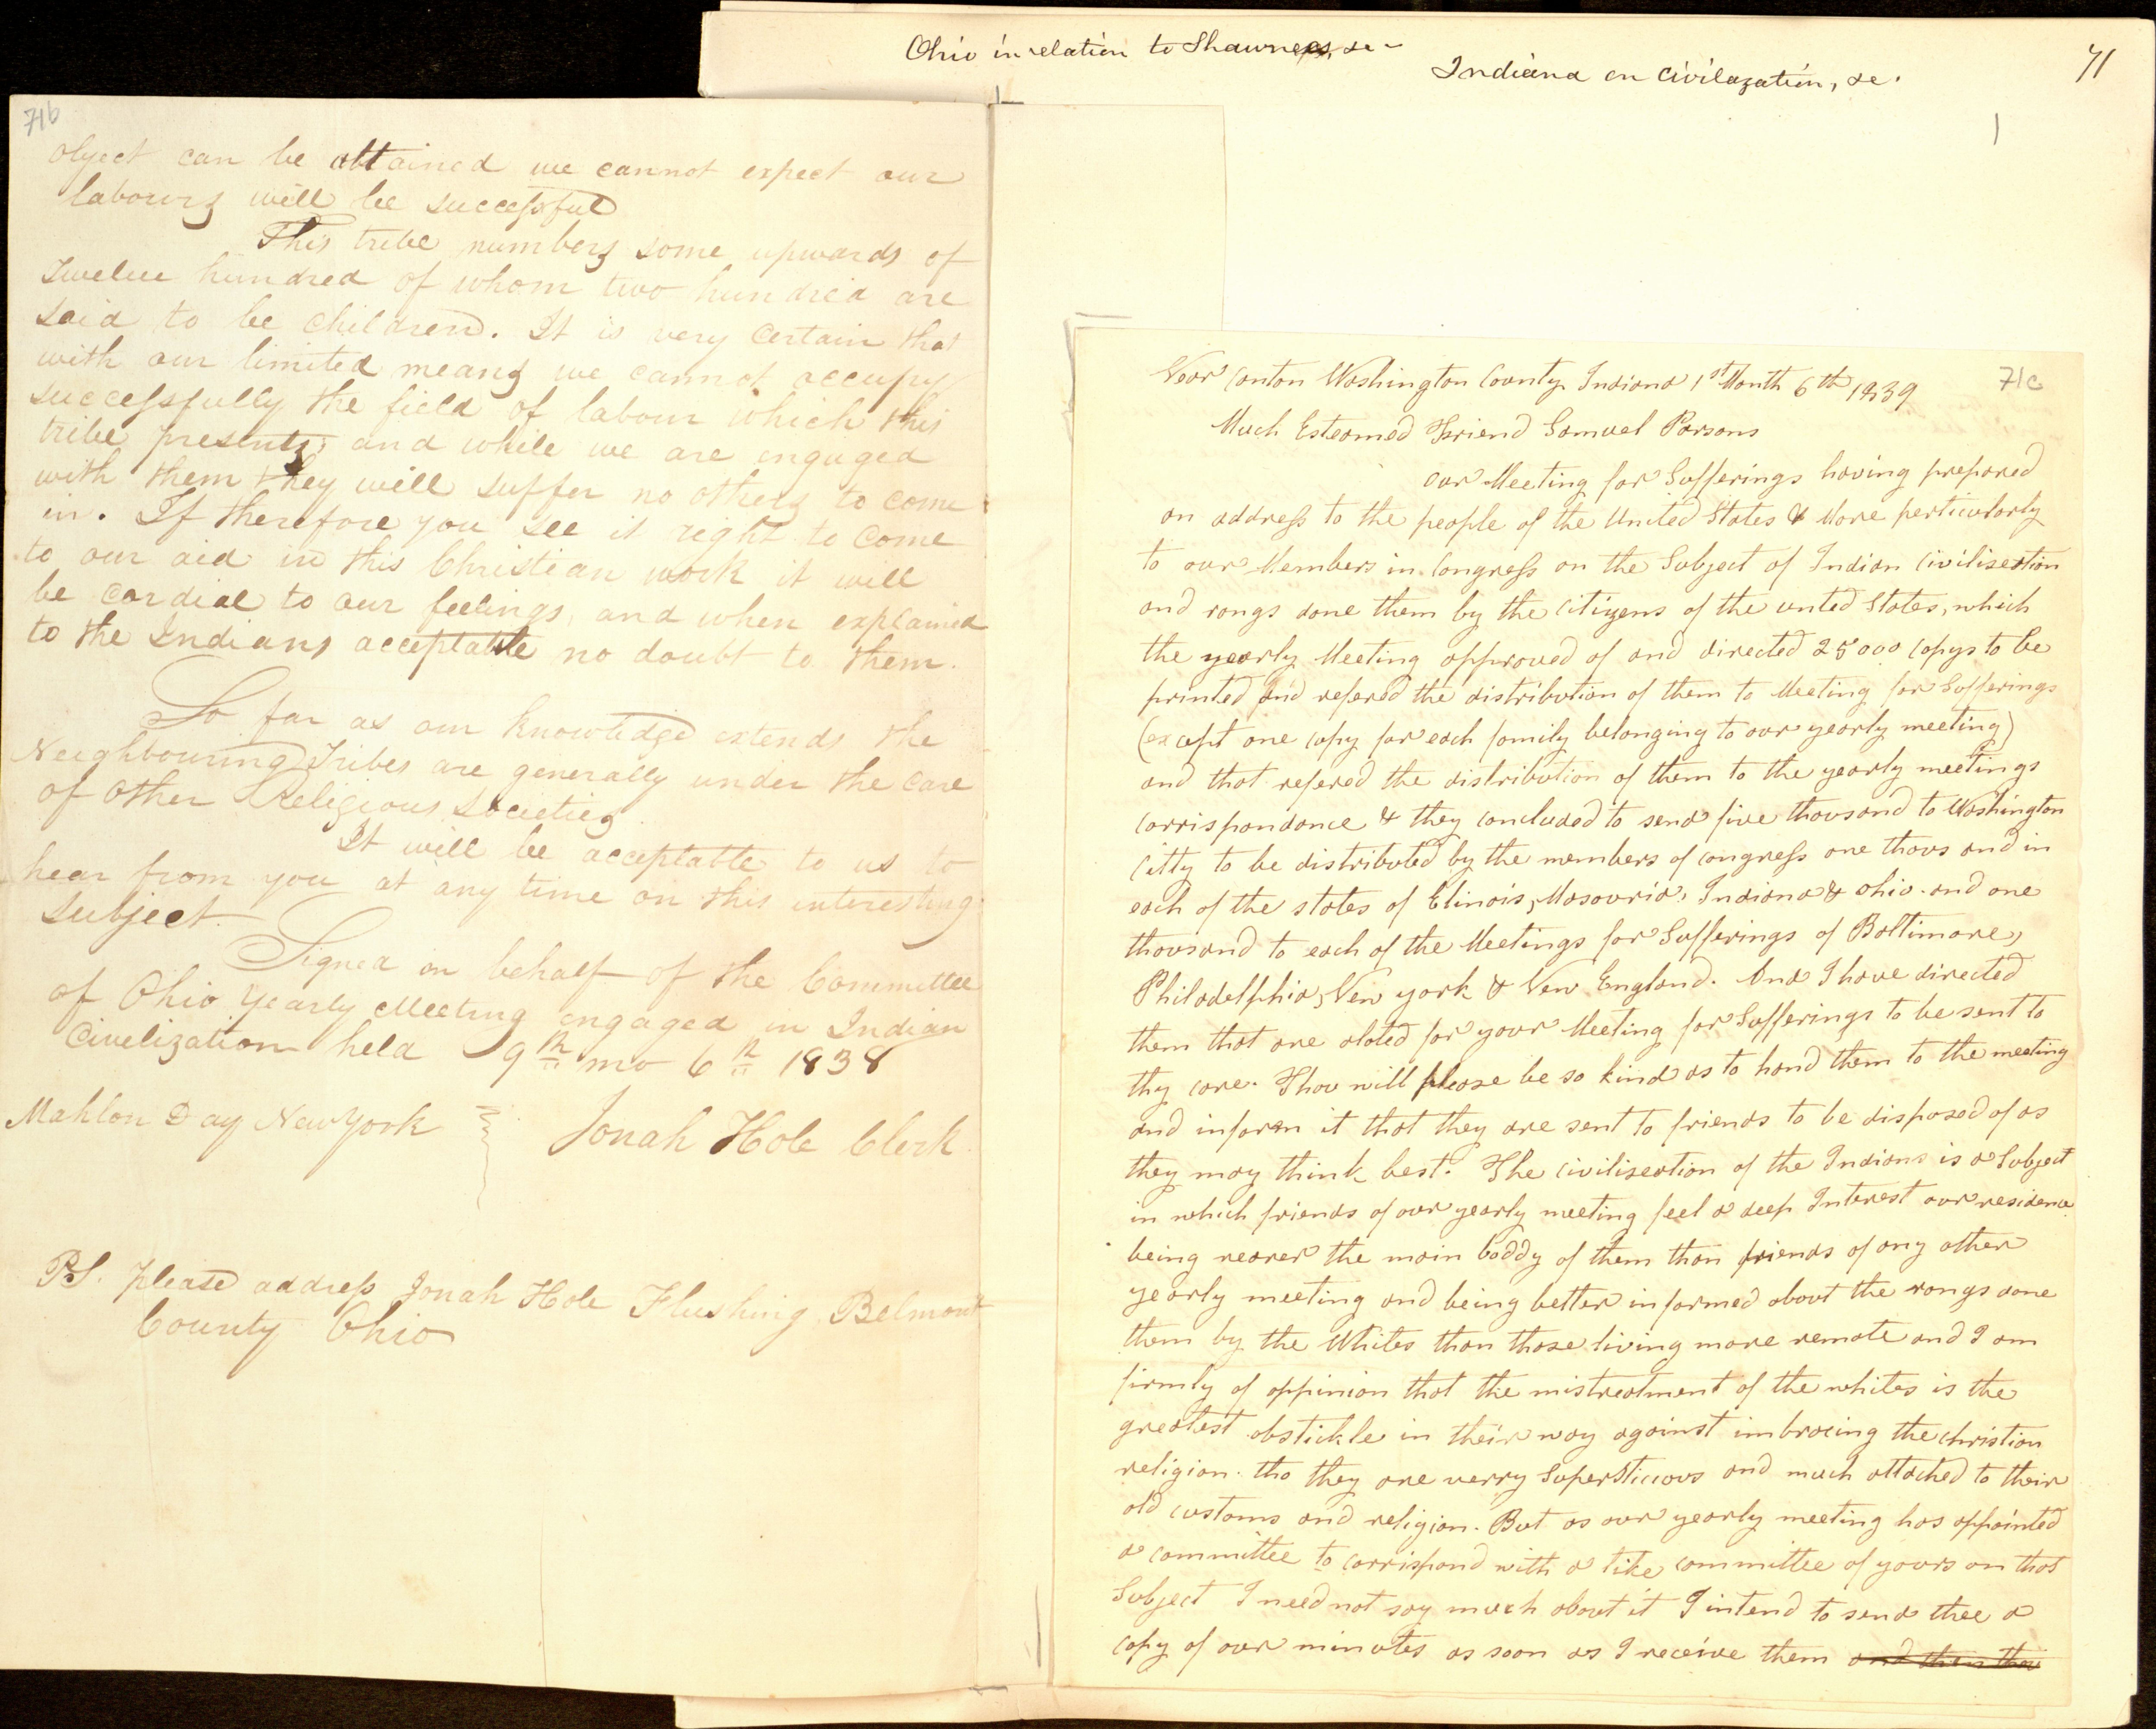 Ohio in relation to Shawnees, &c-
Indiana on civilazation, &c.
71
71b
object can be obtained we cannot expect our
labours will be successful
This tribe numbers some upwards of
Twelve hundred of whom two hundred are
said to be children. It is very certain that
with our limited means we cannot occupy
successfully the field of labour which this
tribe presents, and while we are engaged
with them they will suffer no others to come
in. If therefore you see it right to come
to our aid in this Christian work it will
be cordial to our feelings, and when explained
to the Indians acceptable no doubt to them.
So far as our knowledge extends the
Neighbouring Tribes are generally under the care
of other Religious Societies
It will be acceptable to us to
hear from you at any time on this interesting
subject.
Signed on behalf of the Committee
of Ohio Yearly Meeting engaged in Indian
Civelization held 9th mo 6th 1838
Mahlon Day New York
Jonah Hole Clerk.
P.S. please address Jonah Hole Flushing Belmont
County Ohio
71c
Near Canton Washington County Indiana 1st Month 6th 1839
Much Esteamed Friend Samuel Parsons
our Meeting for Sufferings having prepared
an address to the people of the United States & More perticularly
to our Members in Congress on the Subject of Indian Civilisation
and rongs done them by the citizens of the unted States, which
the yearly Meeting approved of and directed 25000 copys to be
printed and refered the distribution of them to Meeting for Sufferings
(except one copy for each family belonging to our yearly meeting)
and that refered the distribution of them to the yearly meetings
corrispondance & they concluded to send five thousand to Washington
Citty to be distributed by the members of congress one thous and in
each of the states of Elinois, Mosouria, Indiana & ohio and one
thousand to each of the Meetings for Sufferings of Baltimore,
Philadelphia, New york & New England. And I have directed
them that are aloted for your Meeting for Sufferings to be sent to
thy care. Thou will please be so kind as to hand them to the meeting
and inform it that they are sent to friends to be disposed of as
they may think best. The civilisation of the Indians is a Subject
in which friends of our yearly meeting feel a deep Interest our residence
being nearer the main boddy of them than friends of any other
yearly meeting and being better informed about the rongs done
them by the Whites than those living more remote and I am
firmly of oppinion that the mistreatment of the whites is the
greatest obstickle in their way against imbracing the christian
religion. tho they are verry Supersticious and much attached to their
old customs and religion. But as our yearly meeting has appointed
a committee to corrispond with a like committee of yours on that
Subject I need not say much about it I intend to send thee a
copy of our minutes as soon as I receive them and then thou